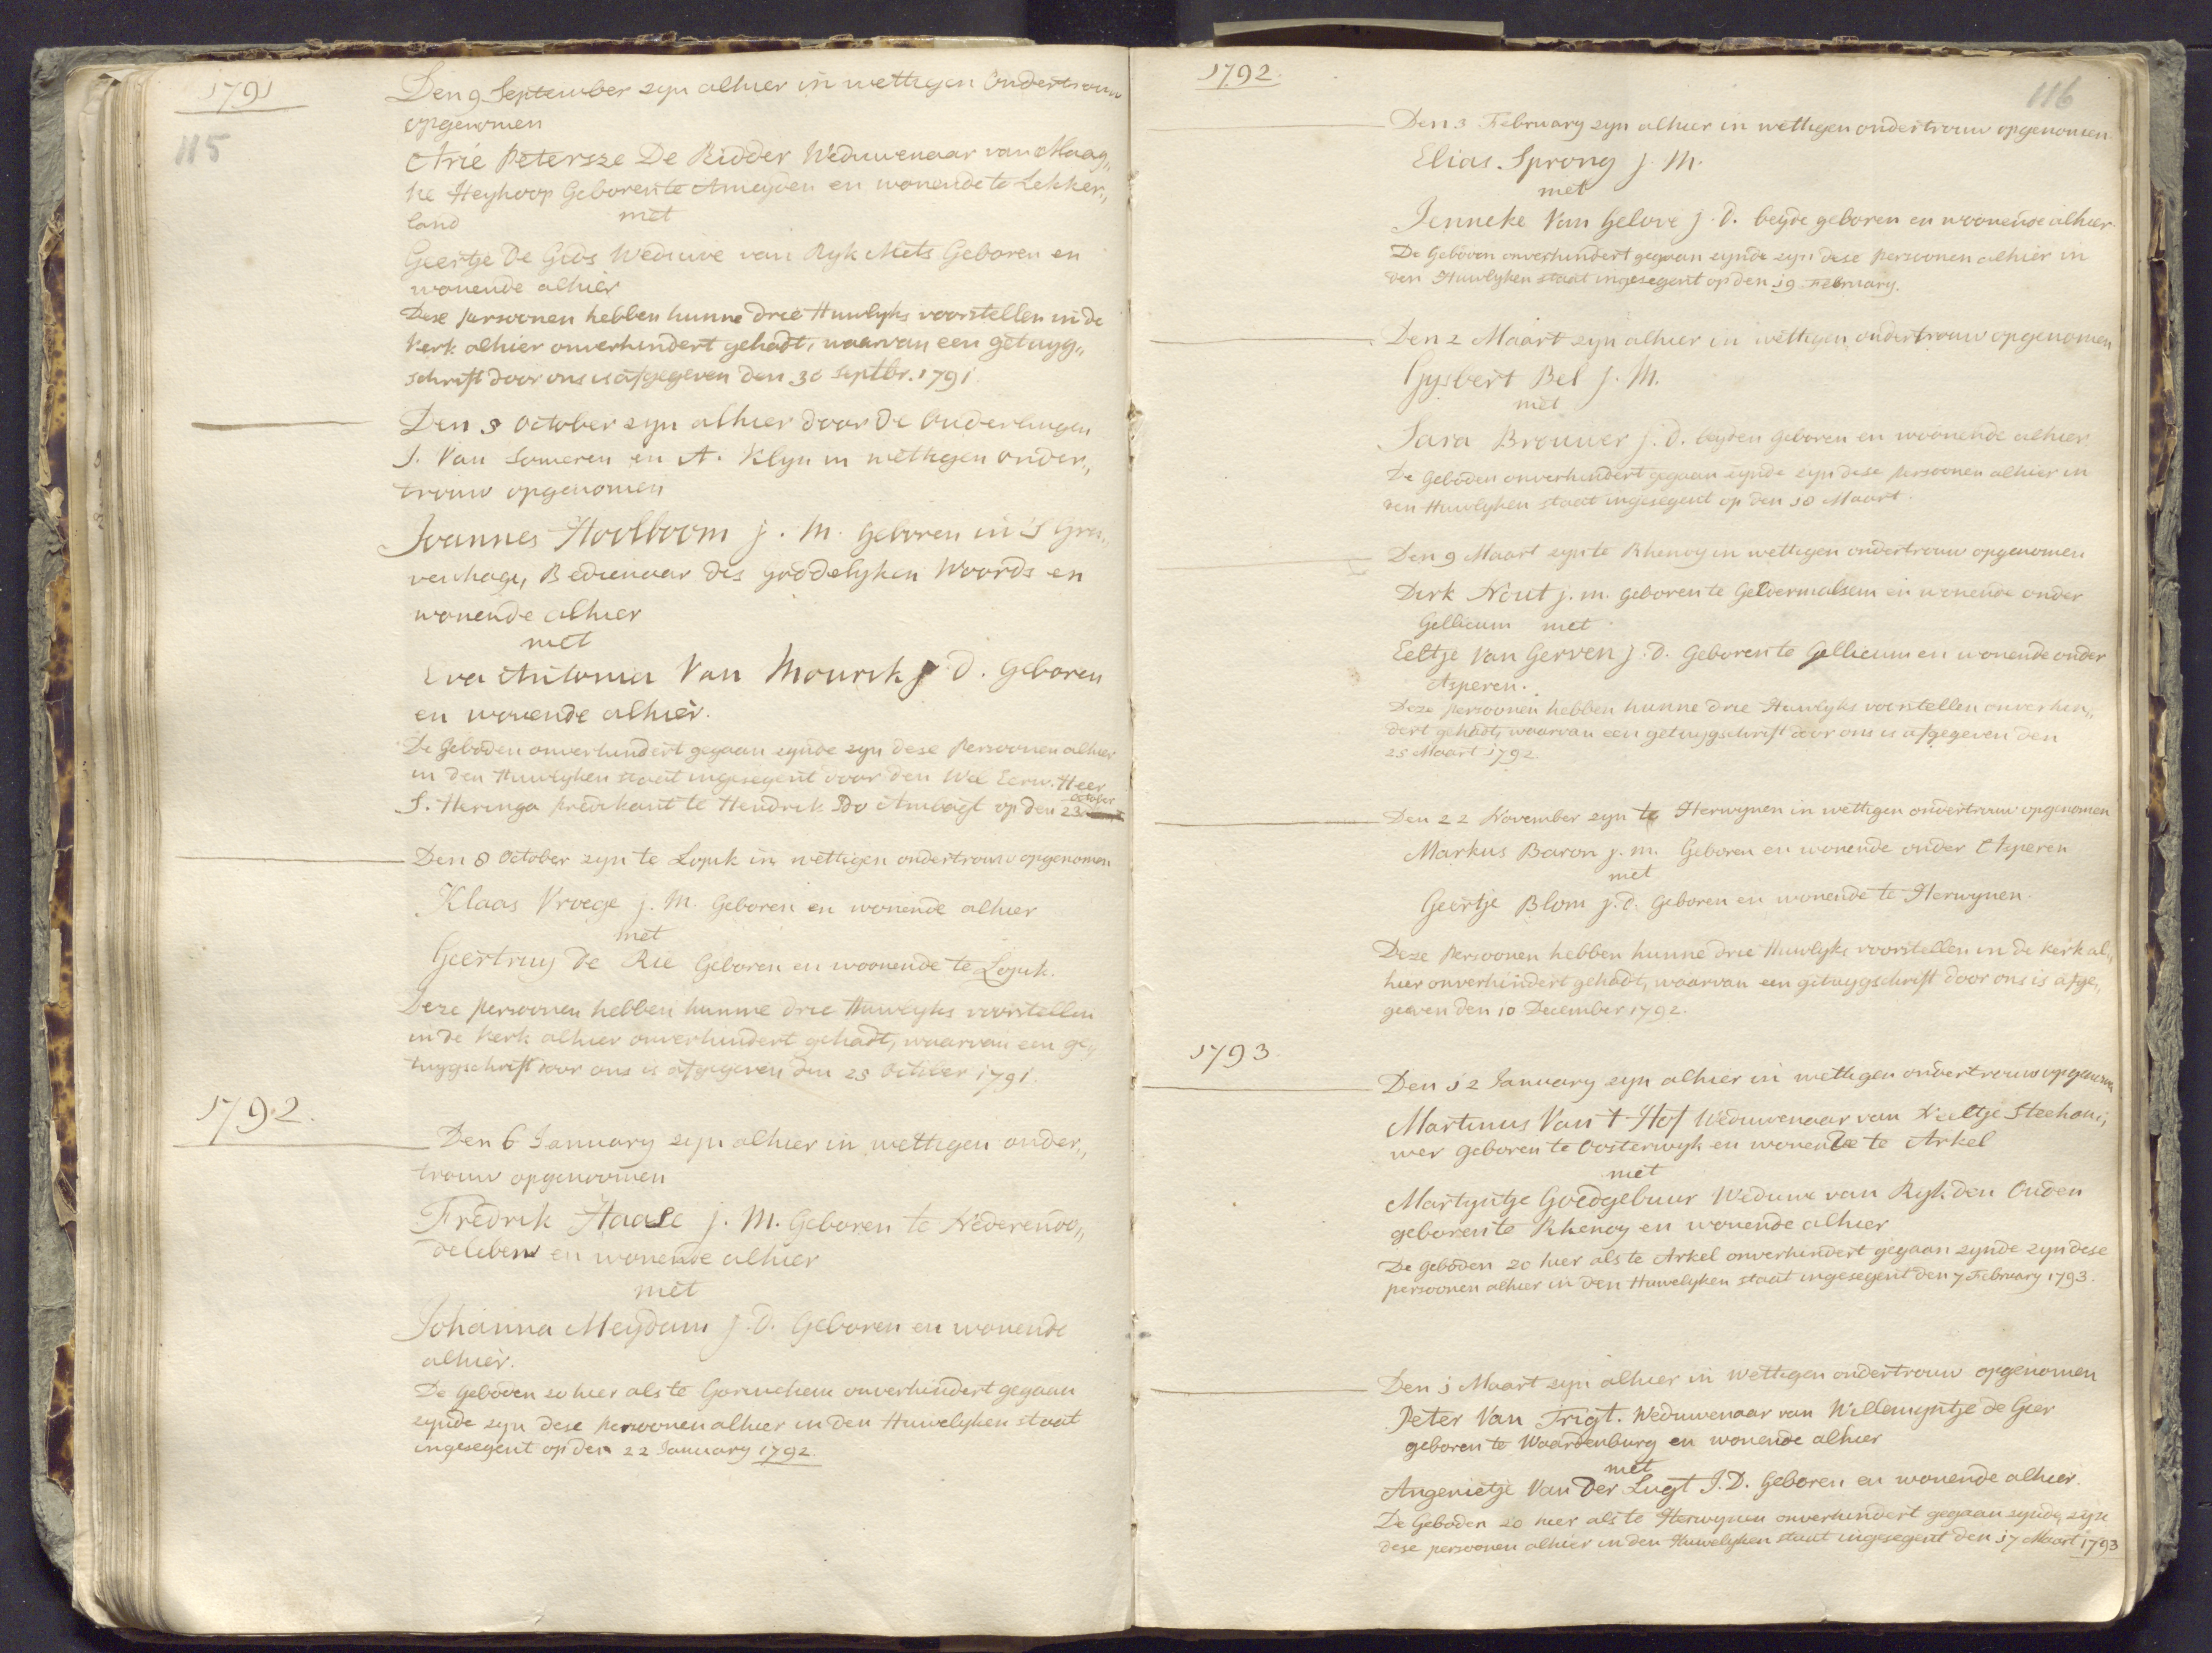 1791
115
Den 9 September zyn alhier in wettigen Ondertrouw
opgenomen
Arie Petersze De Ridder Weduwenaar van Maag„
ke Heykoop Geboren te Ameyden en wonende te Lekker„
land met
Geertje De Gids Weduwe van Ryk Mets Geboren en
wonende alhier
Dese persoonen hebben hunne drie Huwlyks voorstellen in de
Kerk alhier onverhindert gehadt, waarvan een getuyg„
schrift door ons is afgegeven den 30 Septbr. 1791
Den 8 October zyn alhier door De Ouderlingen
J. Van Someren en A. Klyn in wettigen onder„
trouw opgenomen
Joannes Hoolboom j. M. geboren in 's Gra„
venhage, Bedienaar des goddelyken Woords en
wonende alhier
met
Eva Antonia Van Mourik j. d. geboren
en wonende alhier.
De Geboden onverhindert gegaan zynde zyn dese Persoonen alhier
in den Huwlyken staat ingesegent door den Wel Eerw. Heer
J. Heringa predikant te Hendrik Ido Ambagt op den 23 October
Den 8 October zyn te Lopik in wettigen ondertrouw opgenomen
Klaas Vroege j. M. Geboren en wonende alhier
met
Geertruy De Rie Geboren en woonende te Lopik.
Deze persoonen hebben hunne drie Huwelyks voorstellen
in de Kerk alhier onverhindert gehadt, waarvan een ge„
tuygschrift door ons is afgegeven den 23 October 1791.
1792.
Den 6 January zyn alhier in wettigen onder„
trouw opgenoomen
Fredrik Haase j. M. Geboren te Nederendo„
deleben en wonende alhier
met
Johanna Meydam j. d. Geboren en wonende
alhier.
De Geboden zo hier als te Gorinchem onverhindert gegaan
zynde zyn dese persoonen alhier in den Huwelyken staat
ingesegent op den 22 January 1792
1792.
116
Den 3 February zyn alhier in wettigen ondertrouw opgenomen
Elias Sprong j. M.
met
Jenneke Van Gelove j. d. beyde geboren en woonende alhier.
De Geboden onverhindert gegaan zynde zyn dese persoonen alhier in
den Huwlyken staat ingesegent op den 19 February.
Den 2 Maart zyn alhier in wettigen ondertrouw opgenomen
Gysbert Bel j. M.
met
Sara Brouwer j. d. beyden geboren en woonende alhier
De Geboden onverhindert gegaan zynde zyn dese persoonen alhier in
den Huwlyken staat ingesegent op den 18 Maart.
Den 9 Maart zyn te Rhenoy in wettigen ondertrouw opgenomen
Dirk Nout j. m. geboren te Geldermalsem en wonende onder
Gellicum met
Eeltje Van Gerven j. d. Geboren te Gellicum en wonende onder
Asperen.
Deze persoonen hebben hunne drie Huwlyks voorstellen onverhin„
dert gehadt, waarvan een getuygschrift door ons is afgegeven den
25 Maart 1792
Den 22 November zyn te Herwynen in wettigen ondertrouw opgenomen
Markus Baron j. m. Geboren en wonende onder Asperen
met
Geertje Blom j. d. Geboren en wonende te Herwynen.
Deze Persoonen hebben hunne drie Huwlyks voorstellen in de Kerk al„
hier onverhindert gehadt, waarvan een getuygschrift door ons is afge„
geven den 10 December 1792.
1793.
Den 12 January zyn alhier in wettigen ondertrouw opgenomen
Martinus Van 't Hof Weduwenaar van Neeltje Steehou„
wer geboren te Oosterwyk en wonende te Arkel
met
Martyntje Goedgebuur Weduwe van Ryk den Ouden
geboren te Rhenoy en wonende alhier
De Geboden zo hier als te Arkel onverhindert gegaan zynde zyn dese
persoonen alhier in den Huwelyken staat ingesegent den 7 February 1793.
Den 1 Maart zyn alhier in wettigen ondertrouw opgenomen
Peter Van Trigt. Weduwenaar van Willemyntje de Geer
geboren te Waardenburg en wonende alhier
met
Angenietje Van Der Lugt J. D. Geboren en wonende alhier.
De Geboden zo hier als te Herwynen onverhindert gegaan zynde, zijn
dese persoonen alhier in den Huwelyken staat ingesegent den 17 Maart 1793